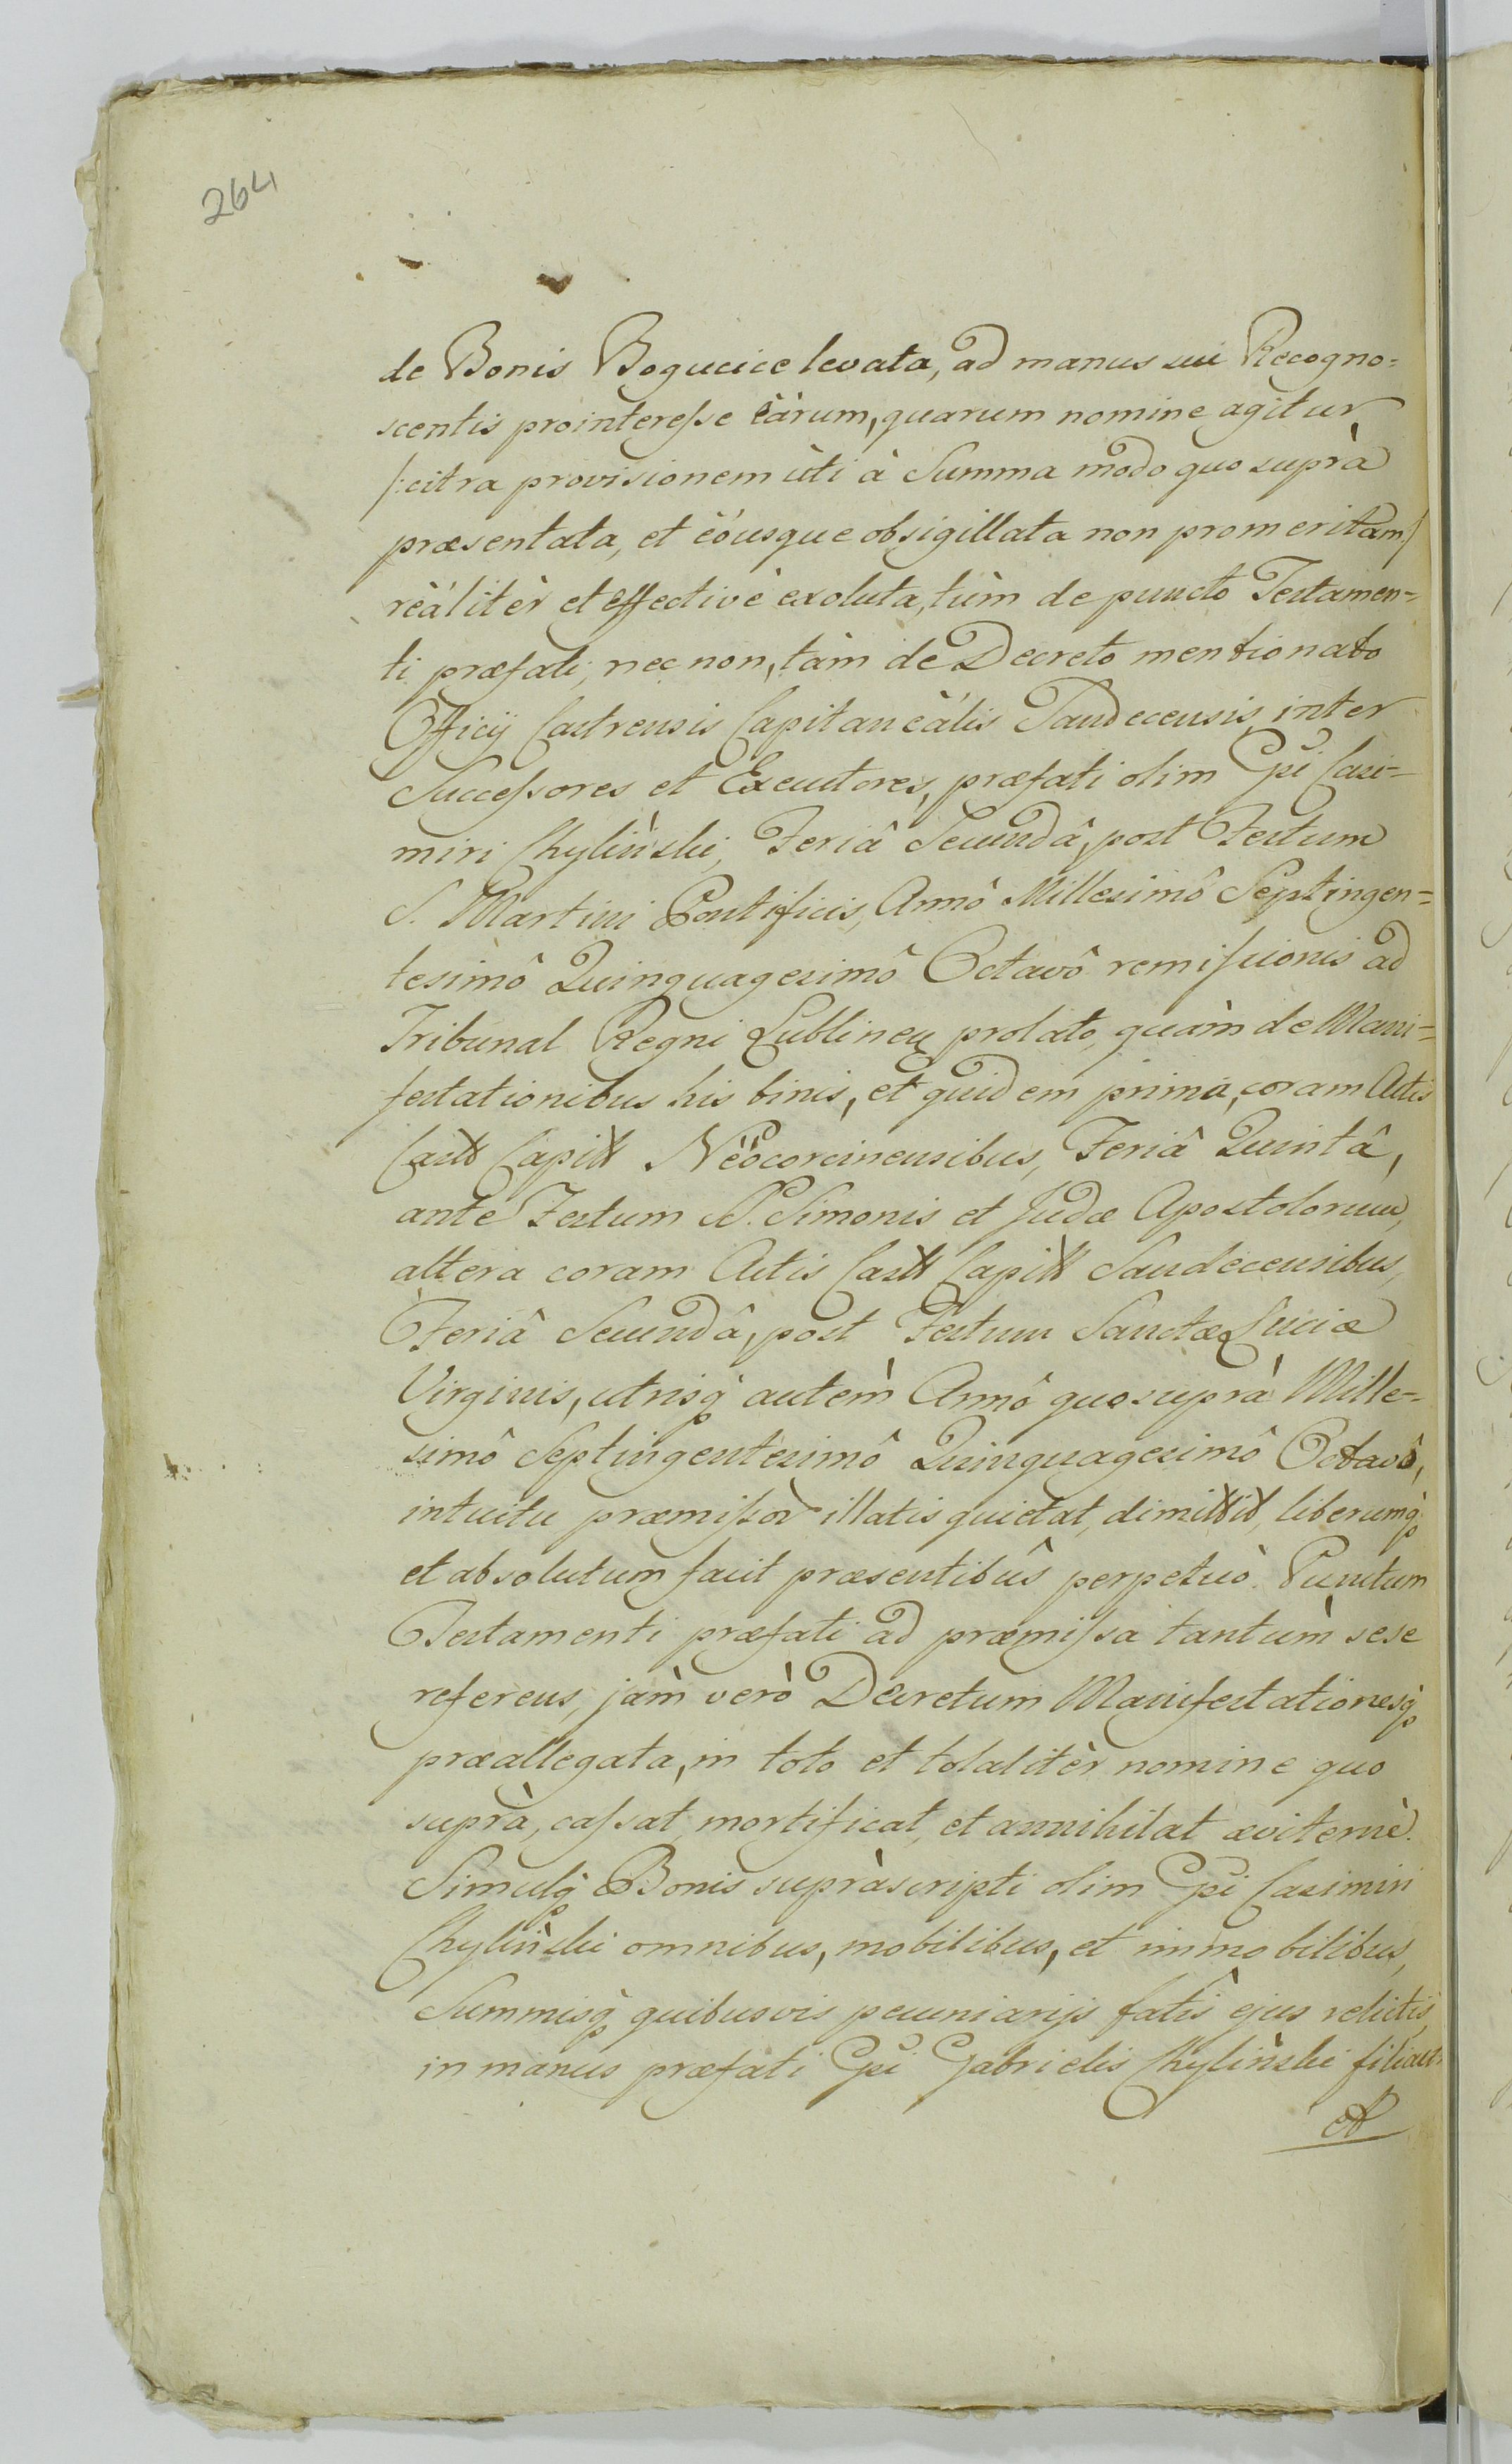 264
de Bonis Bogucice levata, ad manus sui Recogno=
scentis prointeresse eàrum, quarum nomine agitur
/:citra provisionem ùti à Summa modo quo suprà
præsentata, et eóusque obsigillata non promeritam:/
reàlitèr et effectivè exoluta, tùm de puncto Testamen=
ti præfati, nec non, tàm de Decreto mentionato
Officij Castrensis Capitaneàlis Sandecensis inter
Successores et Executores, præfati olim Gsi Casi=
miri Chylinski, Feriâ Secundâ, post Festum
S. Martini Pontificis, Annô Millesimô Septingen=
tesimô Quinquagesimô Octavô remissionis ad
Tribunal Regni Lublinen prolato, quàm de Mani=
festationibus his binis, et quidem prima, coram Actis
Castr Capit Nëocorcinensibus, Feriâ Quintâ,
ante Festum S. Simonis et Judæ Apostolorum,
altera coram Actis Castr Capit Sandecensibus,
Feriâ Secundâ, post Festum Sanctæ Luciæ
Virginis, utrisq autèm Annô quo suprà Mille=
simô Septingentesimô Quinquagesimô Octavô,
intuitu præmissor illatis quietat, dimittit, liberumq
et absolutum facit præsentibûs perpetuò. Punctum
Testamenti præfati ad præmissa tantùm sese
referens, jàm verò Decretum Manifestationesq
præallegata, in toto et totalitèr nomine quo
suprà, cassat, mortificat, et annihilat æviternè.
Simulq Bonis supràscripti olim Gsi Casimiri
Chylinski omnibus, mobilibus, et immobilibus,
Summisq quibusvis pecuniarijs fatis ejus relictis,
in manus præfati Gsi Gabrielis Chylinski filiast
et